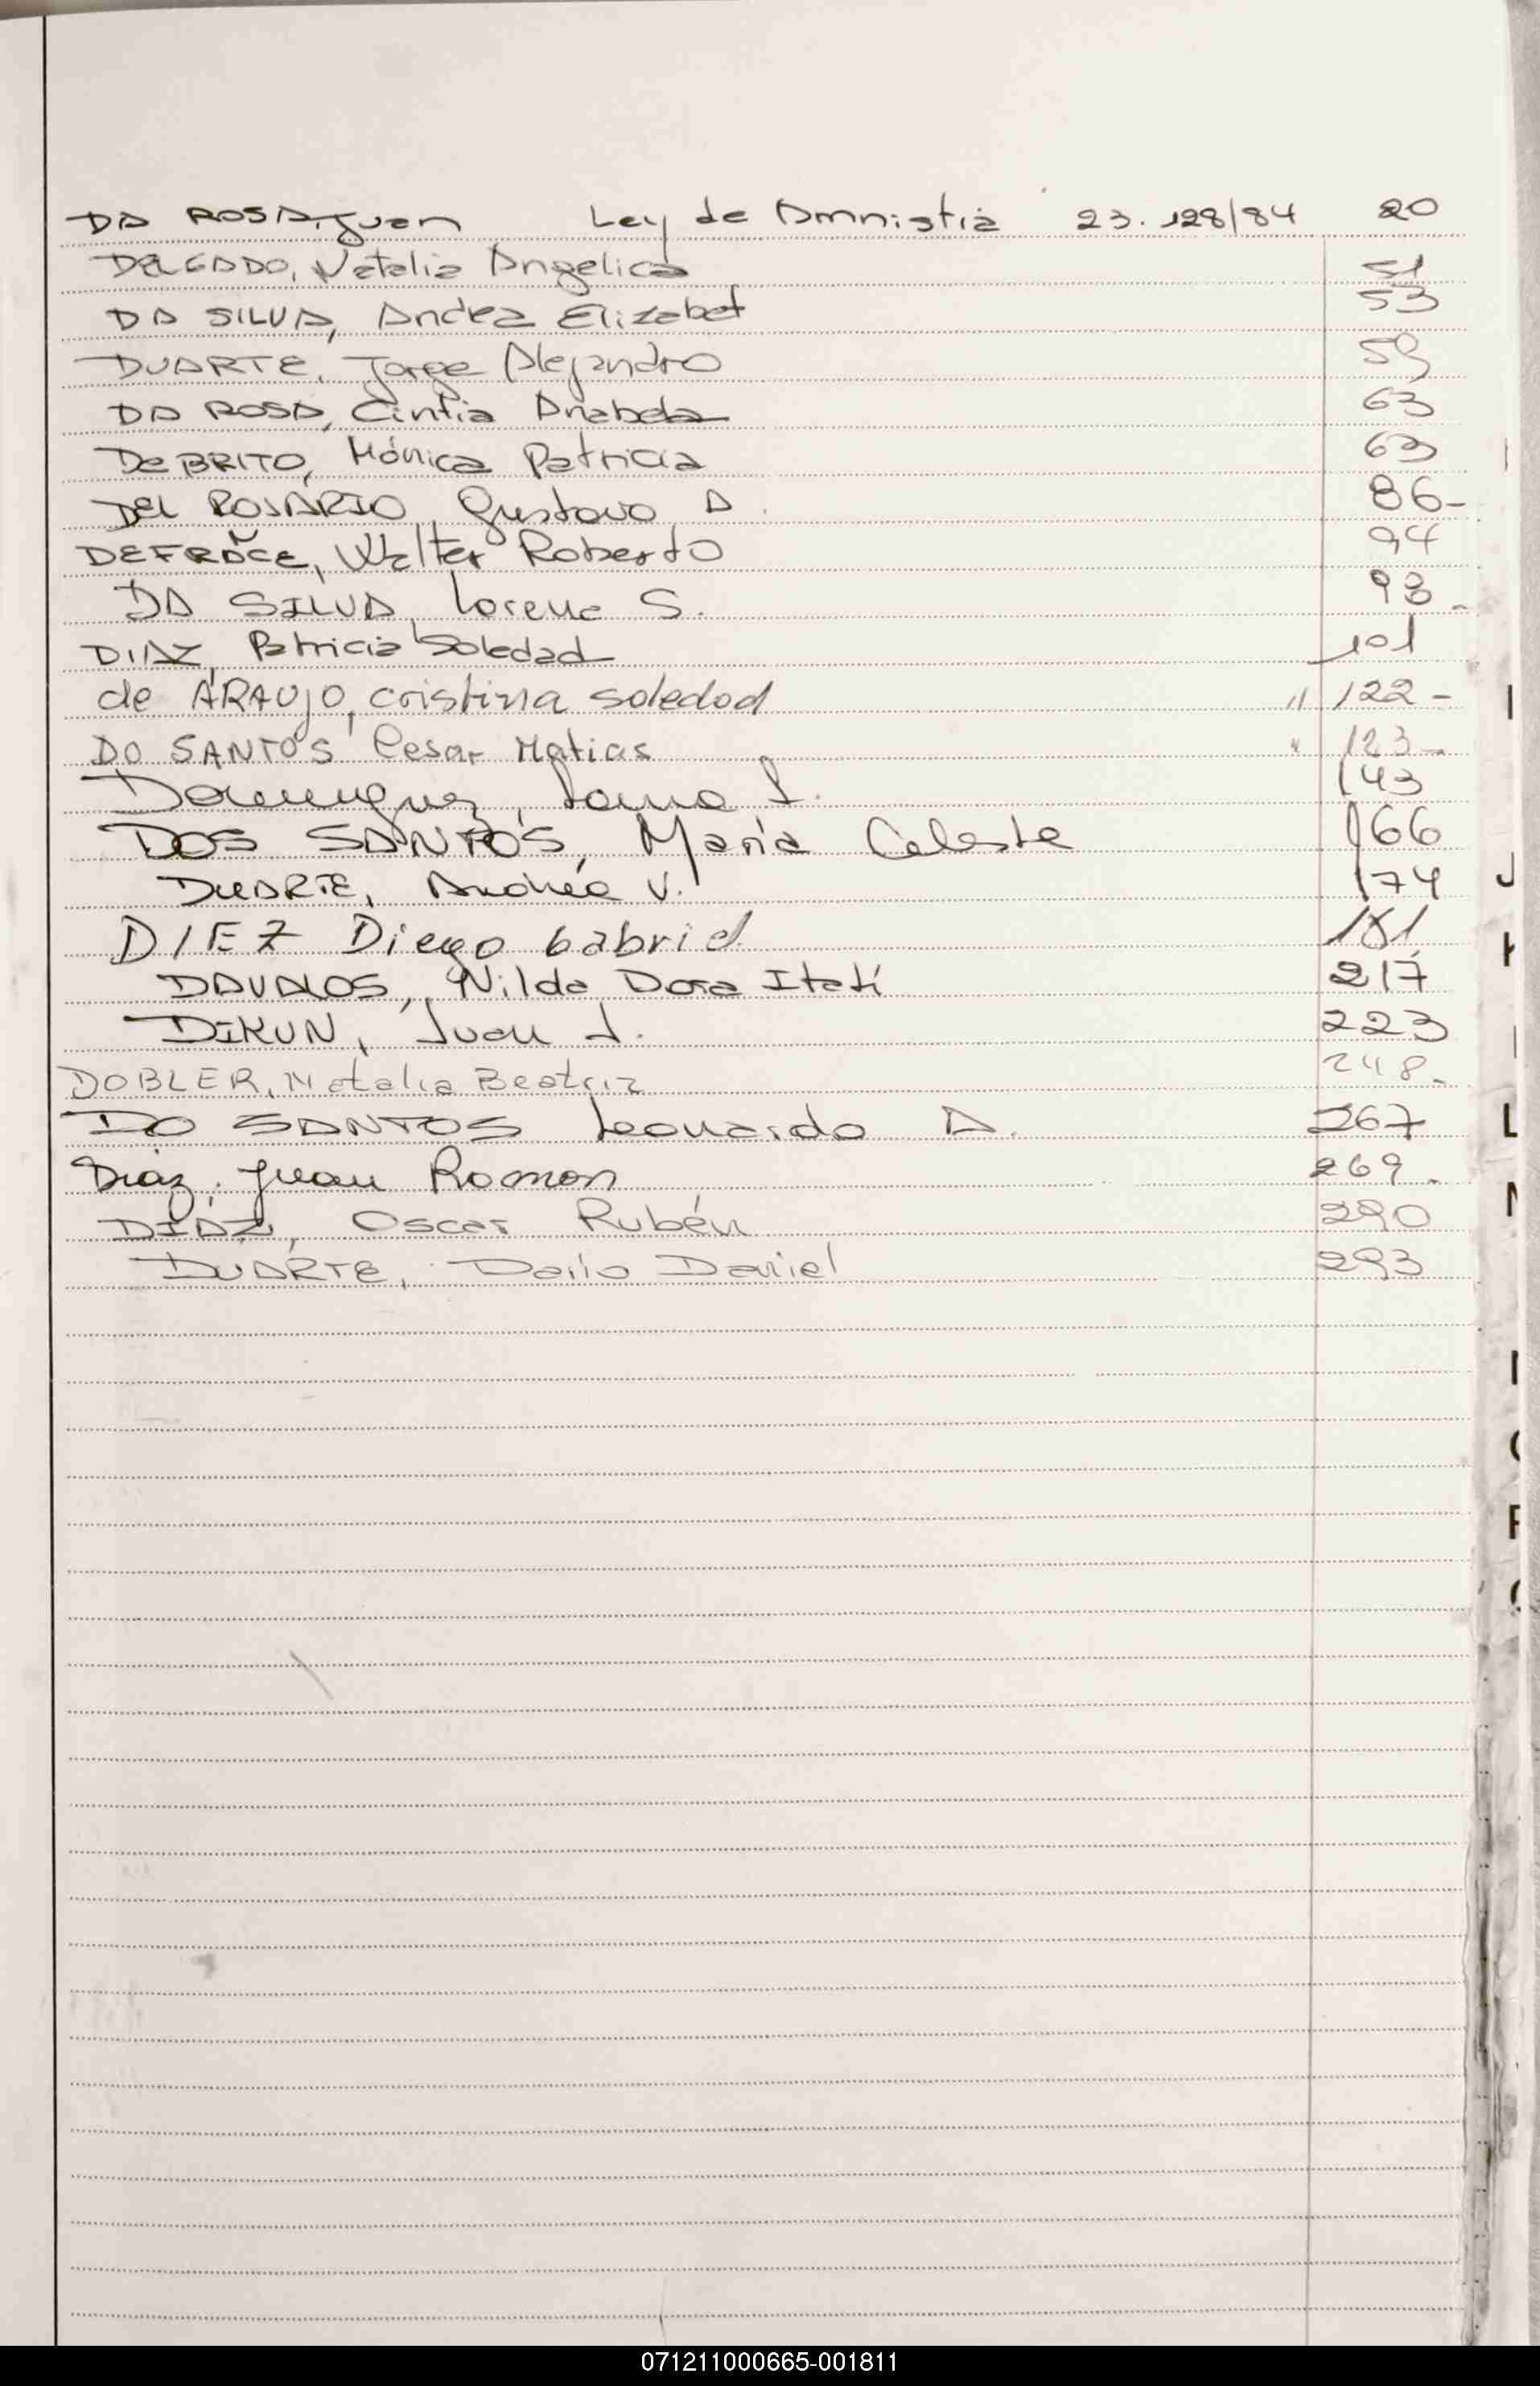 DA ROSA, Juan Ley de Amnistia 23.128/84 20
DELGADO, Natalia Angelica 51
DA SILVA, Andrea Elizabet 53
DUARTE, Jorge Alejandro 59
DA ROSA, Cintia Anabela 63
De BRITO, Mónica Patricia 63
DEL ROSARIO, Gustavo A. 86-
Walter Roberto 94
DA SILVA, Lorena S. 98-
DIAZ, Patricia Soledad 101
de ARAUJO, cristina soledad " 122-
DO SANTOS Cesar Matias " 123-
Dominguez, L. 143
DOS SANTOS, María Celeste 166
DUARTE, Andrea V. 174
DIEZ Diego Gabriel 181
DAVALOS, Nilda Dora Itatí 217
DIKUN, Juan J. 223
DOBLER, Natalia Beatriz 248-
DO SANTOS Leonardo A. 267
Diaz, Juan Ramon 269.
DIAZ, Oscar Rubén 290
DUARTE, Darío Daniel 293
J
L
071211000665-001811